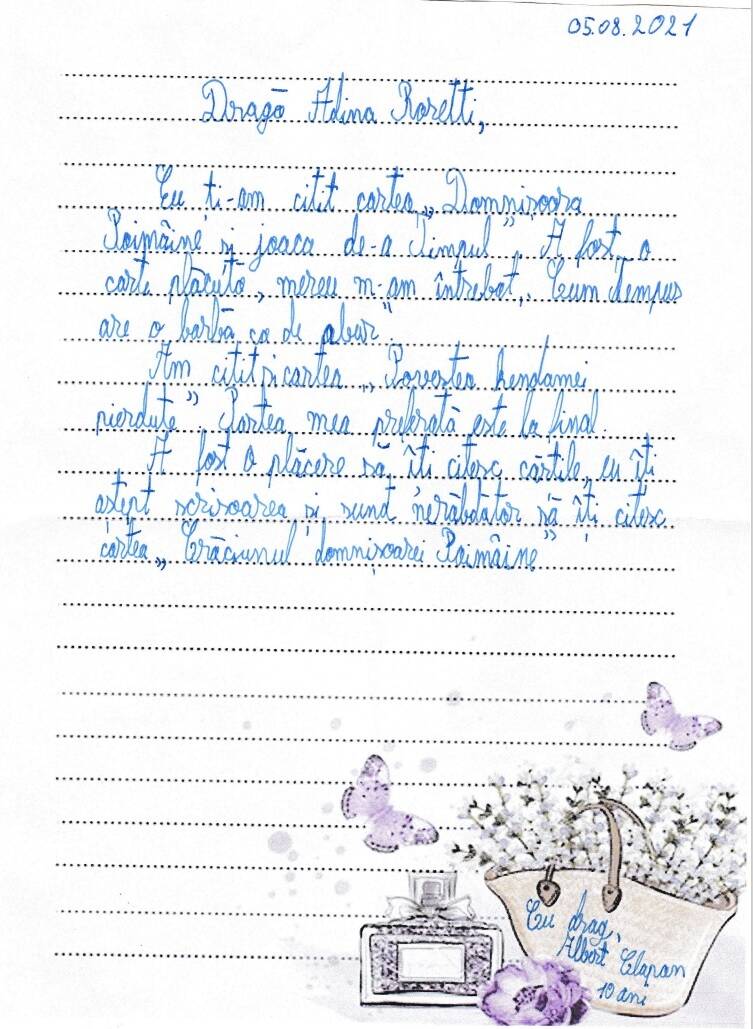 05.08.2021
Dragă Adina Rosetti,
Eu ți-am citit cartea „Domnișoara
Poimâine și joaca de-a Timpul”. A fost o
carte plăcută, mereu m-am întrebat, „Cum Tempus
are o barbă ca de abur”.
Am citit și cartea „Povestea hendamei
pierdute” Partea mea preferată este la final.
A fost o plăcere să îți citesc cărțile, eu îți
aștept scrisoarea și sunt nerăbdător să îți citesc
cartea „Crăciunul domnișoarei Poimâine”
Cu drag,
Albert Clapan
10 ani